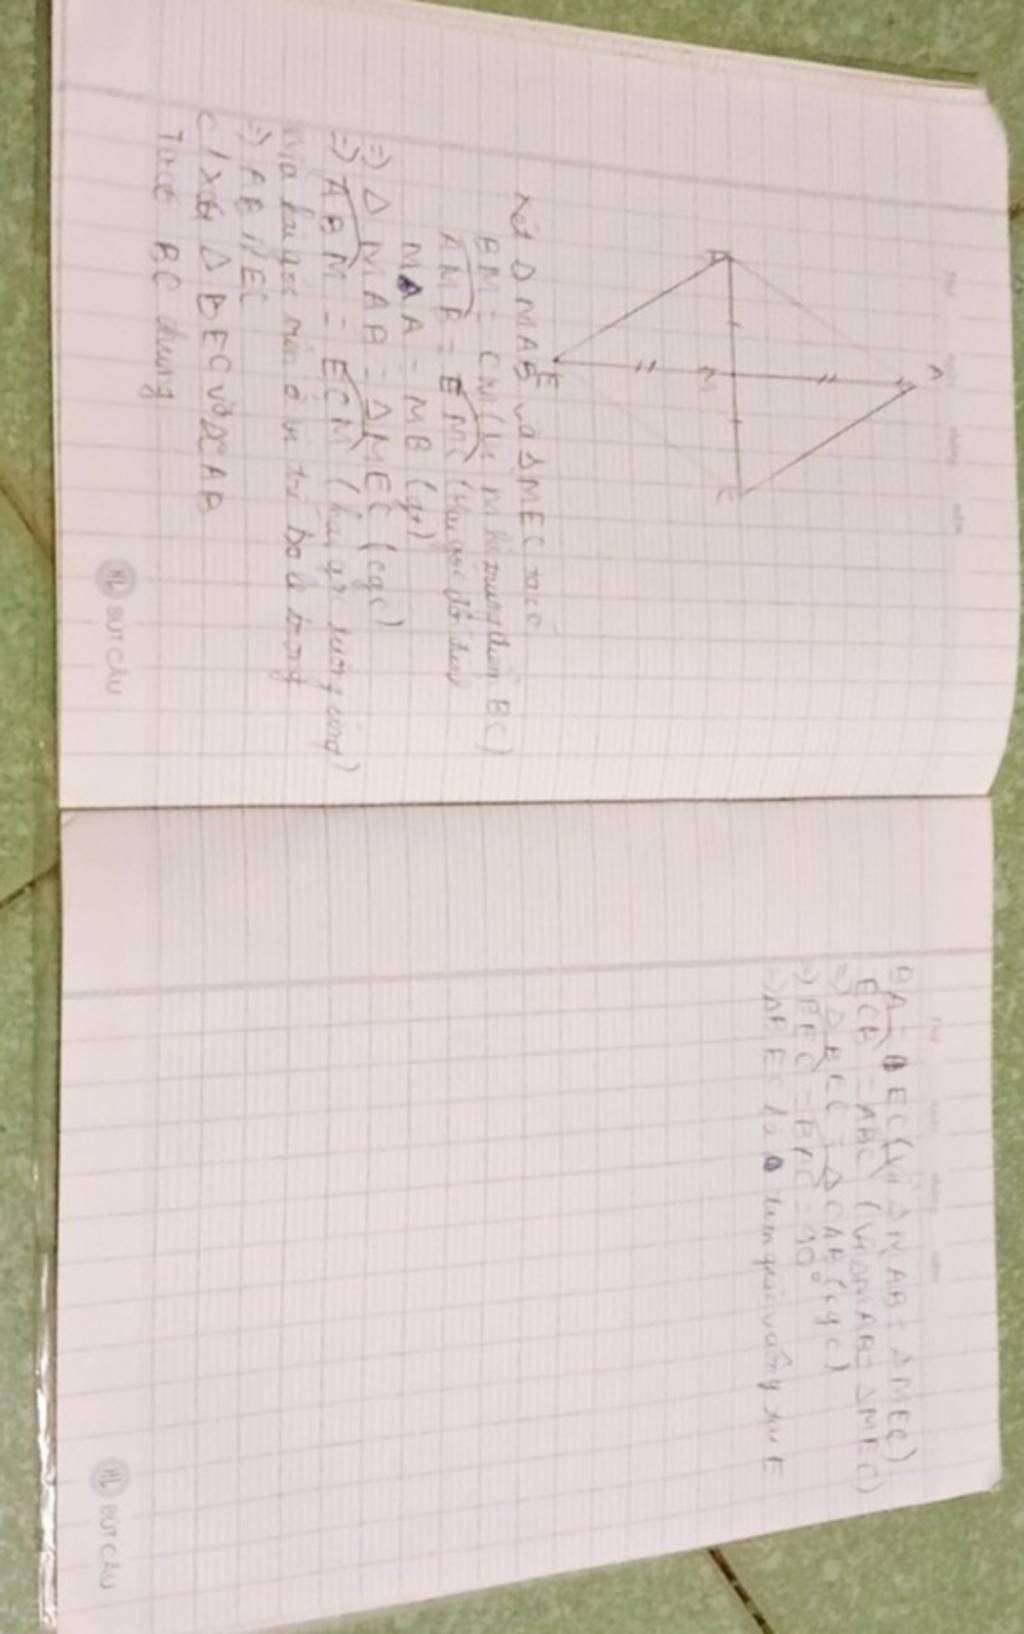 A
B
M
C
E
Xét Δ MAB và Δ MEC ta có
BM = CM (vì M là trung điểm BC)
AMB = EMC (hai góc đối đỉnh)
MA = MB (gt)
=) Δ MAB = Δ MEC (cgc)
=) ABM = ECM (hai góc tương ứng)
Mà hai góc này ở vị trí so le trong
=) AB // EC
C / Xét Δ BEC và ΔCAB
Ta có BC chung
HL BUT CHU
Thứ ngày tháng năm
BA = EC (vì Δ MAB = Δ MEC)
ECB = ABC (Vì ΔMAB = ΔMEC)
=) Δ BEC = ΔCAB (cgc)
=) BEC = BAC = 90°
=) BEC là tam giác vuông tại E
HL BUT CHU